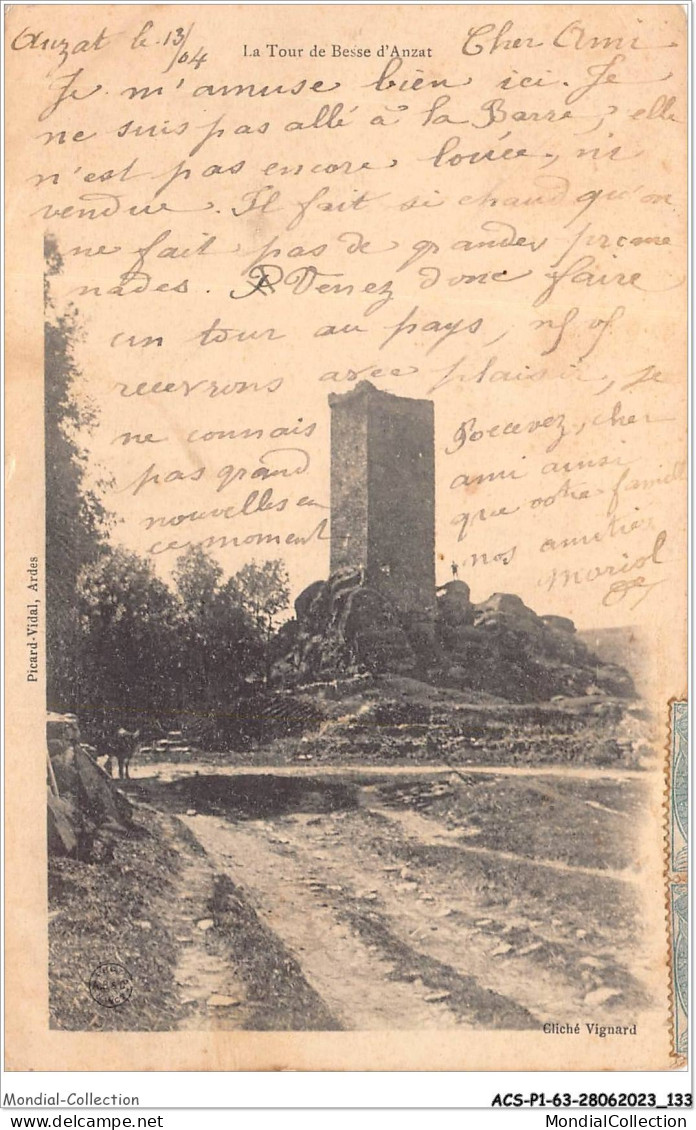 Auzat le 13/04
La Tour de Besse d'Anzat
Cher Ami
Je m'amuse bien ici. Je
ne suis pas allé à la Barre, elle
n'est pas encore louée, ni
vendue. Il fait si chaud qu'on
ne fait pas de grandes prome
nades. Venez donc faire
un tour au pays,
recevrons avec plaisir, je
ne connais
pas grand
nouvelles en
ce moment
Recevez, cher
ami ainsi
que votre famille
nos amitiés
Picard-Vidal, Ardes
Cliché Vignard
Mondial-Collection
ACS-P1-63-28062023_133
MondialCollection.com